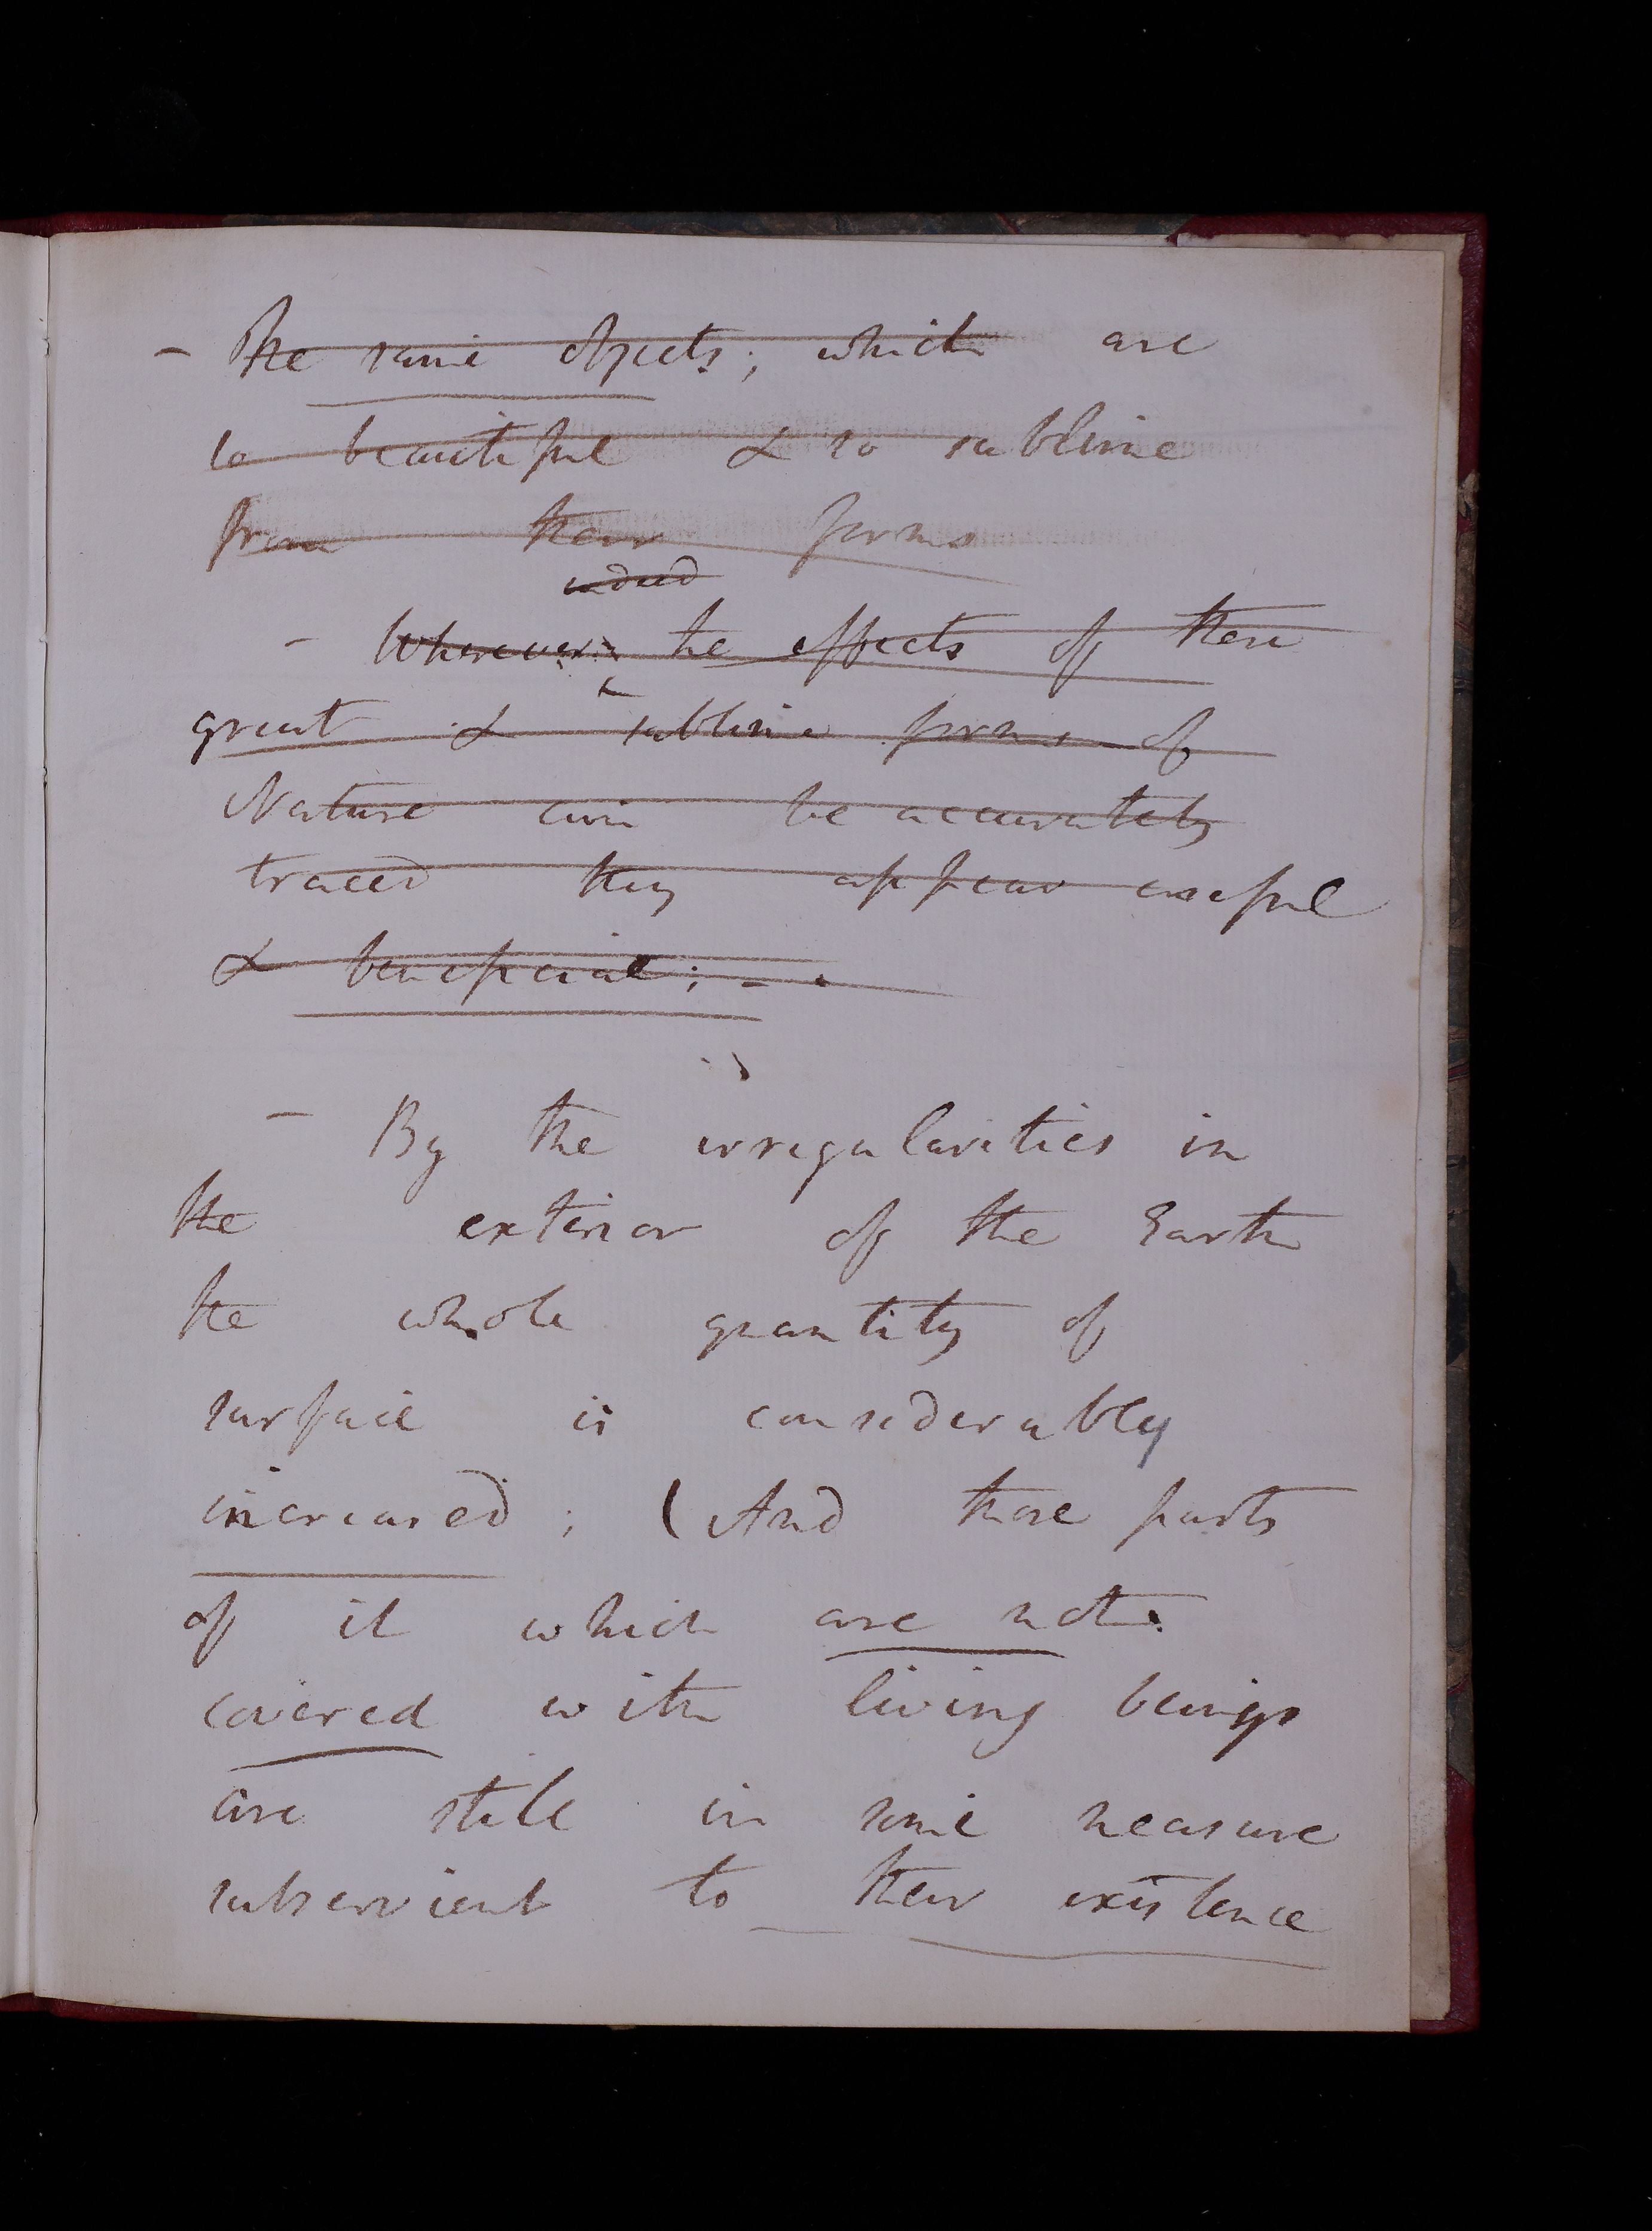 - The same objects; which are
so beautiful & so sublime
from their forms
indeed
- Wherever the effects of these
great & sublime forms of
Nature can be accurately
traced they appear useful
& beneficial; -
- By the irregularities in
the exterior of the Earth
the whole quantity of
surface is considerably
increased; (And those parts
of it which are not
covered with living beings
are still in some measure
subservient to their existence